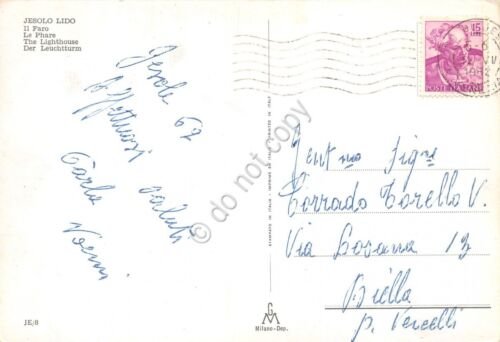 JESOLO LIDO
Il Faro
Le Phare
The Lighthouse
Der Leuchtturm
Jesolo 62
Affettuosi saluti
Carla
15
LIRE
POSTE ITALIANE
Gent mo Sig re
Corrado Torello V.
Via Lozana 13
Biella
p. Vercelli
JE/8
Milano-Dep.
do not copy